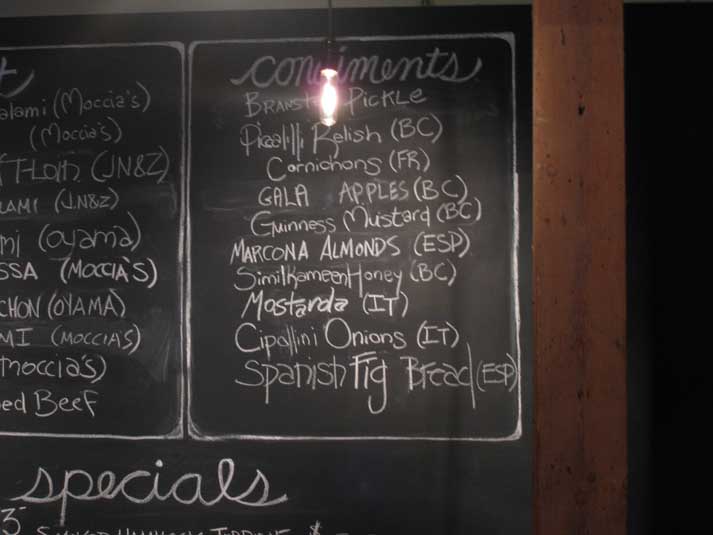 (Moccia's)
(Moccia's)
(JN&Z)
(JN&Z)
(oyama)
(MOCCIA'S)
(OYAMA)
(MOCCIA'S)
(moccia's)
Beef
condiments
Pickle
Picalilli Relish (BC)
Cornichons (FR)
GALA APPLES (BC)
Guinness Mustard (BC)
MARCONA ALMONDS (ESP)
Similkameen Honey (BC)
Mostarda (IT)
Cipallini Onions (IT)
Spanish Fig Bread (ESP)
specials